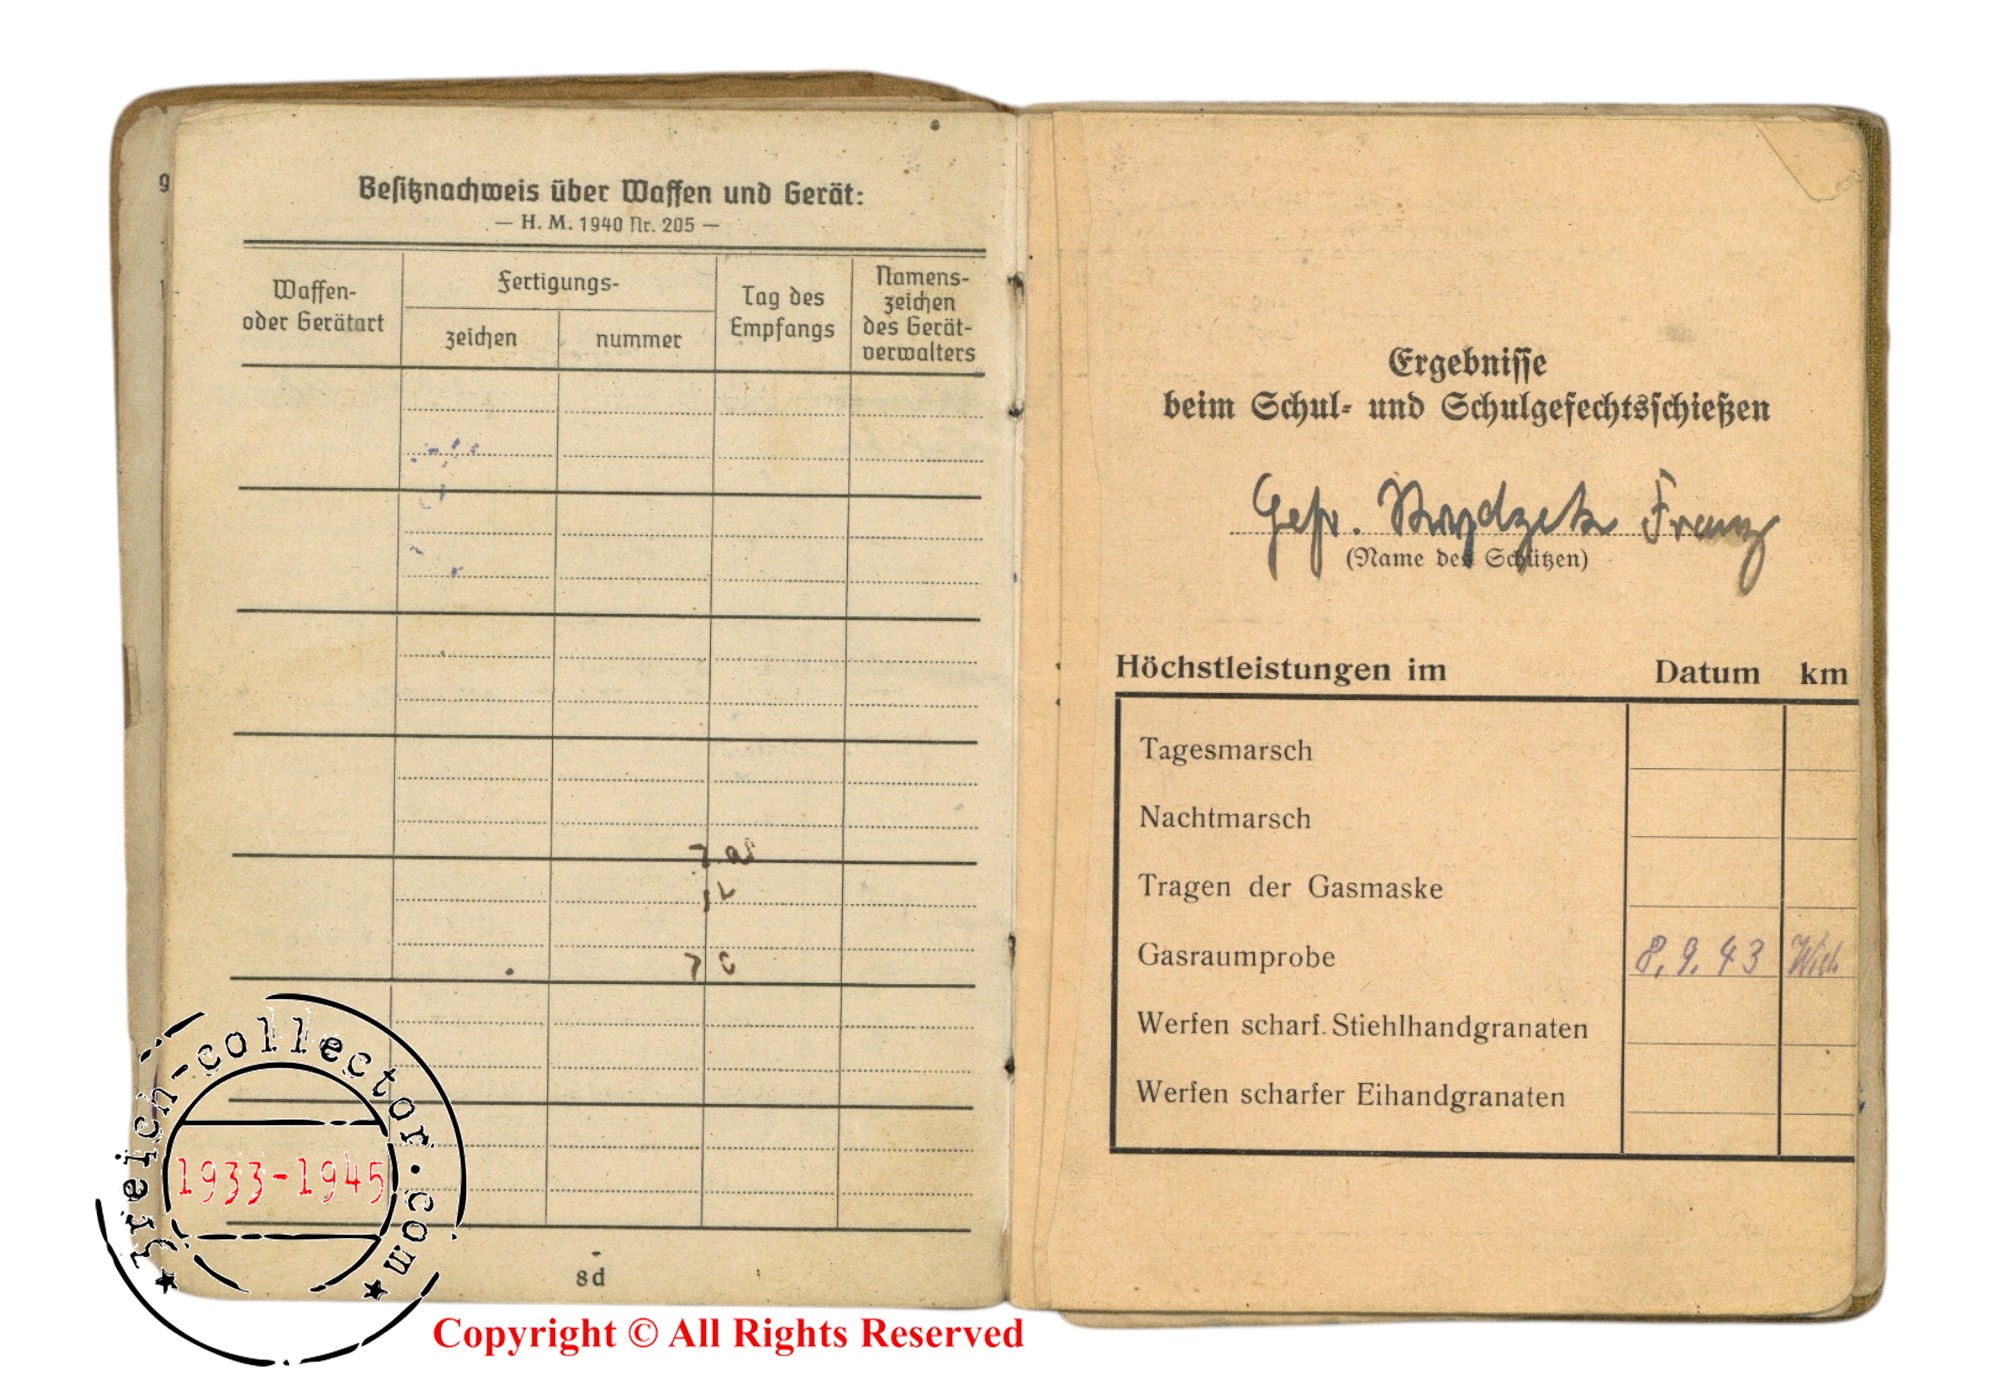 Besitznachweis über Waffen und Gerät:
— H. M. 1940 Nr. 205 —
Waffen-
oder Gerätart
Fertigungs-
zeichen
nummer
Tag des
Empfangs
Namens-
zeichen
des Gerät-
verwalters
8d
9
Ergebnisse
beim Schul- und Schulgefechtsschießen
Gefr. Franz
(Name des Schützen)
Höchstleistungen im Datum km
Tagesmarsch
Nachtmarsch
Tragen der Gasmaske
Gasraumprobe 8.9.43
Werfen scharf. Stiehlhandgranaten
Werfen scharfer Eihandgranaten
3reich-collector.com
1933-1945
Copyright © All Rights Reserved